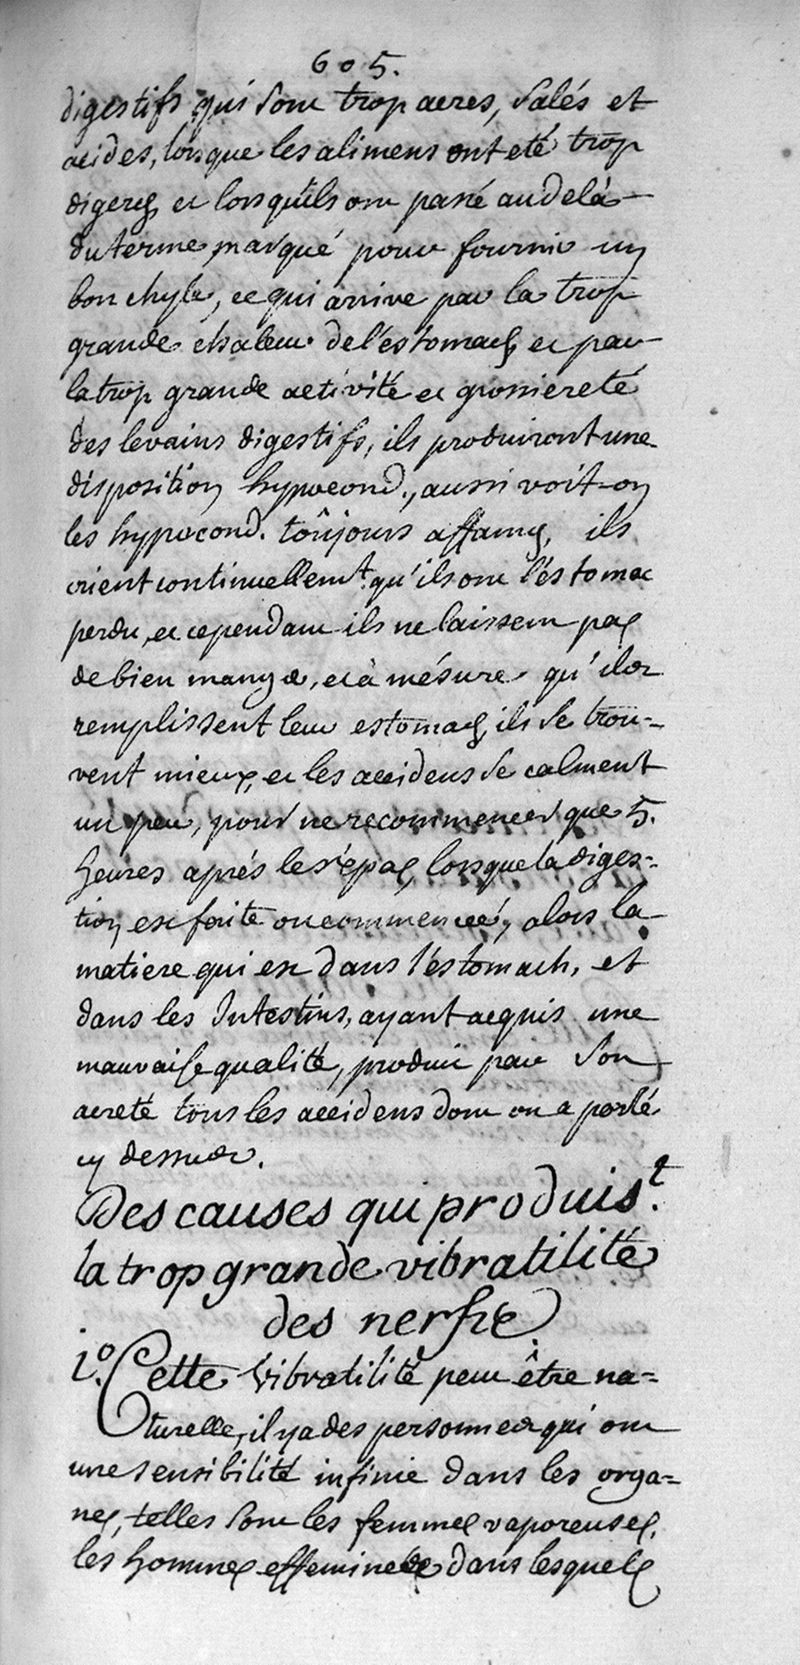 605.
digestifs qui sont trop acres, salés et
acides, lorsque les alimens ont eté trop
digerés et lorsqu'ils ont passé au delà
du terme marqué pour fournir un
bon chyle, ce qui arrive par la trop
grande chaleur de l'estomach et par
la trop grande activité et grossiereté
des levains digestifs, ils produiront une
disposition hypocond., aussi voit-on
les hypocond. toûjours affamés, ils
crient continuellemt. qu'ils ont l'éstomac
perdu, et cependant ils ne laissent pas
de bien manger, et à mésure qu'ils
remplissent leur estomach, ils se trou=
vent mieux, et les accidens se calment
un peu, pour ne recommencer que 5.
heures aprés le répas, lorsque la diges=
tion est faite ou commencée, alors la
matiere qui est dans l'éstomach, et
dans les Intestins, ayant acquis une
mauvaise qualité, produit par son
acreté tous les accidens dont on a parlé
cy dessus.
Des causes qui produist.
la trop grande vibratilité
des nerfs.
1o. Cette vibratilité peut être na=
turelle, il y a des personnes qui ont
une sensibilité infinie dans les orga=
nes, telles sont les femmes vaporeuses,
les hommes effeminés dans lesquels